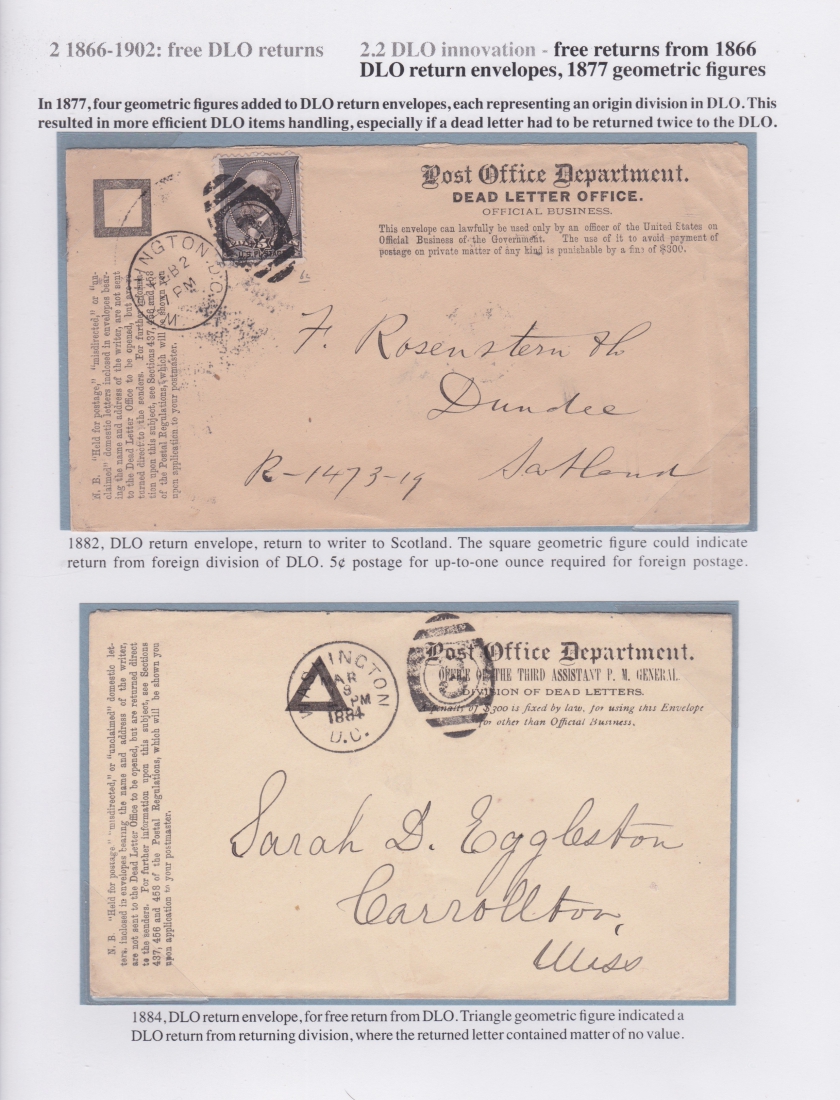 2 1866-1902: free DLO returns 2.2 DLO innovation - free returns from 1866
DLO return envelopes, 1877 geometric figures
In 1877, four geometric figures added to DLO return envelopes, each representing an origin division in DLO. This
resulted in more efficient DLO items handling, especially if a dead letter had to be returned twice to the DLO.
Post Office Department.
DEAD LETTER OFFICE.
OFFICIAL BUSINESS.
This envelope can lawfully be used only by an officer of the United States on
Official Business of the Government. The use of it to avoid payment of
postage on private matter of any kind is punishable by a fine of $300.
2
1 PM
D.C.
U.S. POSTAGE
N. B. "Held for postage," "misdirected," or "un-
claimed" domestic letters inclosed in envelopes bear-
ing the name and address of the writer, are not sent
to the Dead Letter Office to be opened, but are re-
turned direct to the senders. For further informa-
tion upon this subject, see Sections 437, 456 and 458
of the Postal Regulations, which will be shown you
upon application to your postmaster.
F. Rosenstern
Dundee
R-1473-19 Scotland
1882, DLO return envelope, return to writer to Scotland. The square geometric figure could indicate
return from foreign division of DLO. 5¢ postage for up-to-one ounce required for foreign postage.
Post Office Department.
OFFICE OF THE THIRD ASSISTANT P. M. GENERAL.
DIVISION OF DEAD LETTERS.
A penalty of $300 is fixed by law, for using this Envelope
for other than Official Business.
WASHINGTON
MAR
PM
1884
D.C.
N. B. "Held for postage" "misdirected," or "unclaimed" domestic let-
ters, inclosed in envelopes bearing the name and address of the writer,
are not sent to the Dead Letter Office to be opened, but are returned direct
to the senders. For further information upon this subject, see Sections
437, 456 and 458 of the Postal Regulations, which will be shown you
upon application to your postmaster.
Sarah D. Eggleston
Carrollton,
Miss
1884, DLO return envelope, for free return from DLO. Triangle geometric figure indicated a
DLO return from returning division, where the returned letter contained matter of no value.